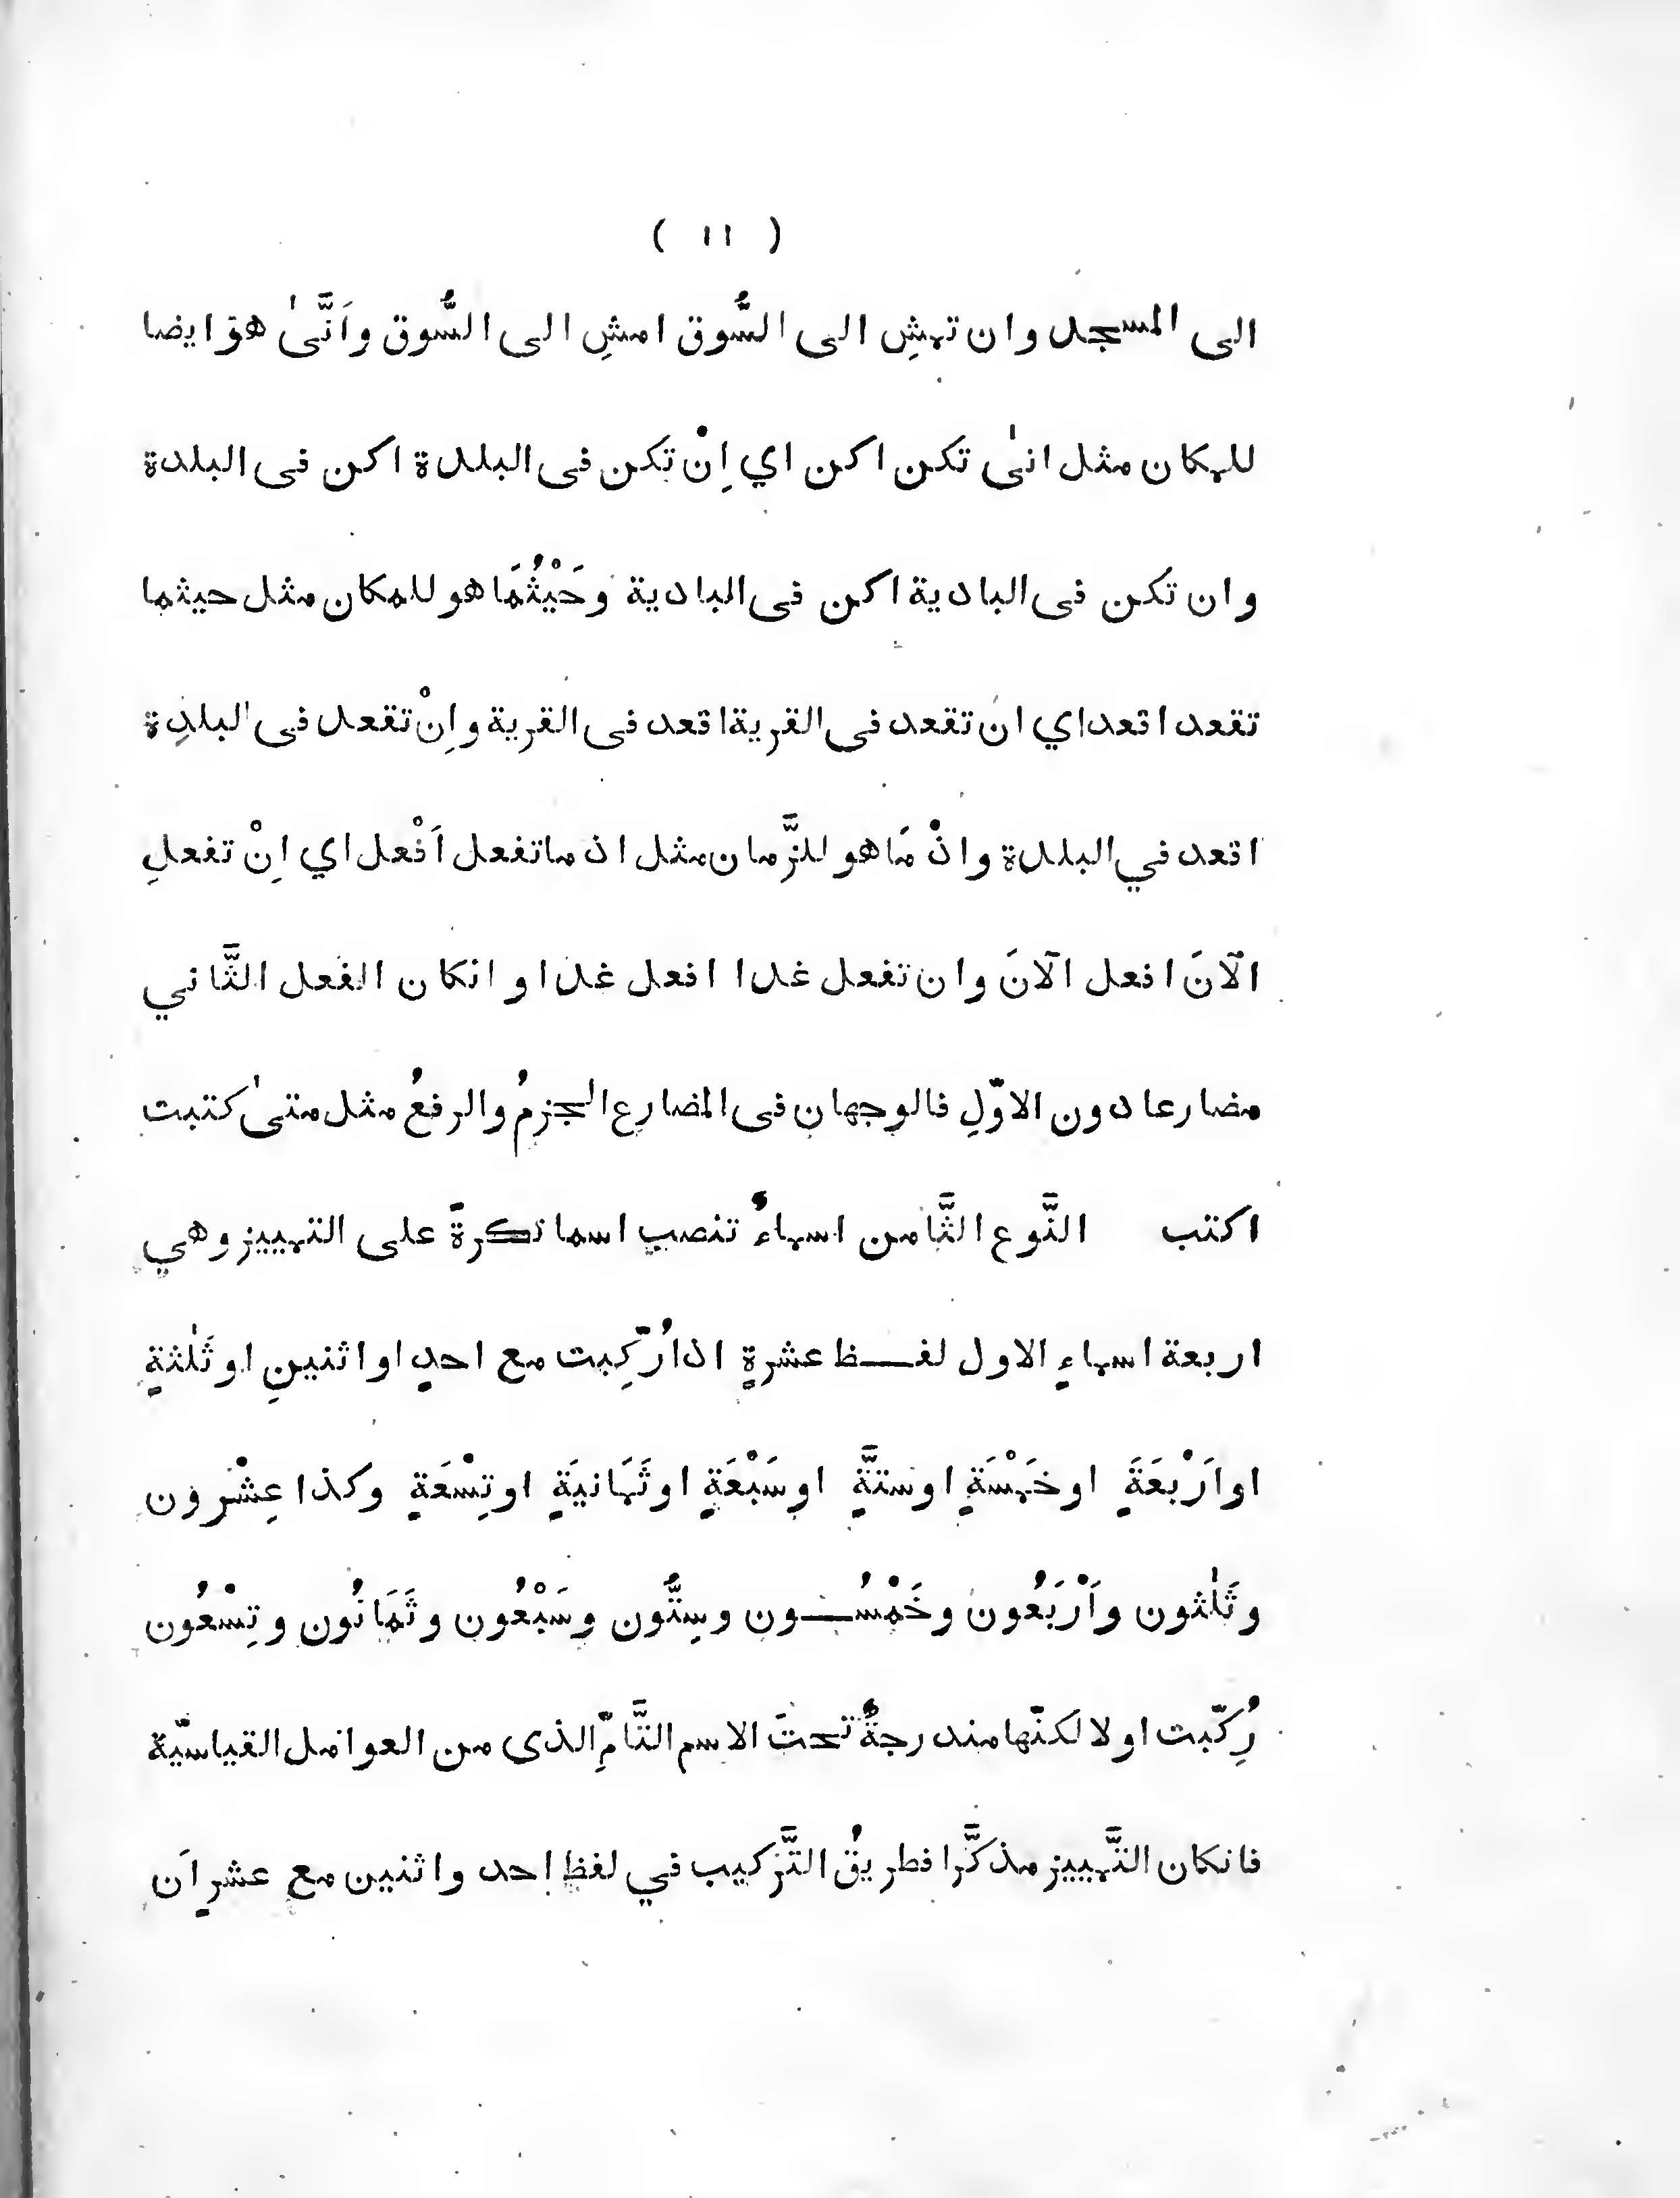 ( ١١ )
الى المسجد وان تمشِ الى السُّوق امشِ الى السُّوق واَنَّىٰ هوَ ايضا
للمكان مثل انىٰ تكن اكن اي اِنْ تكن فى البلدة اكن فى البلدة
وان تكن فى البادية اكن فى البادية وحَيْثُمَا هو للمكان مثل حيثما
تقعد اقعد اي ان تقعد فى القرية اقعد فى القرية واِنْ تقعد فى البلدِة
اقعد في البلدة واذْ مَا هو للزَّمان مثل اذ ما تفعل اَفْعل اي اِنْ تفعلِ
الآنَ افعل الآنَ وان تفعل غدا افعل غدا و انكان الفعل الثَّاني
مضارعا دون الاوّلِ فالوجهان فى المضارع الجزمُ والرفعُ مثل متىٰ كتبت
اكتب النَّوع الثَّامن اسماءٌ تنصب اسما نكرةً على التمييز وهي
اربعة اسماءٍ الاول لفـــظ عشرةٍ اذا رُكِّبت مع احدٍ او اثنينِ او ثَلٰثةٍ
او اَرْبعَةَ او خَمْسَةٍ او ستةَّ او سَبْعَةٍ او ثَمَانيَةٍ او تِسْعَةٍ وكذا عِشْرون
وثَلٰثون واَرْبَعُون وخَمْسُـــون وسِتُّون وسَبْعُون وثَمَانُون وتِسْعُون
رُكِّبت او لا لكنّها مندرجةٌ تحتَ الاسم التَّامِّ الذى من العوامل القياسيّة
فانكان التَّمييز مذكَّرا فطريقُ التَّركيب في لفظ احد واثنين مع عشرٍ اَن